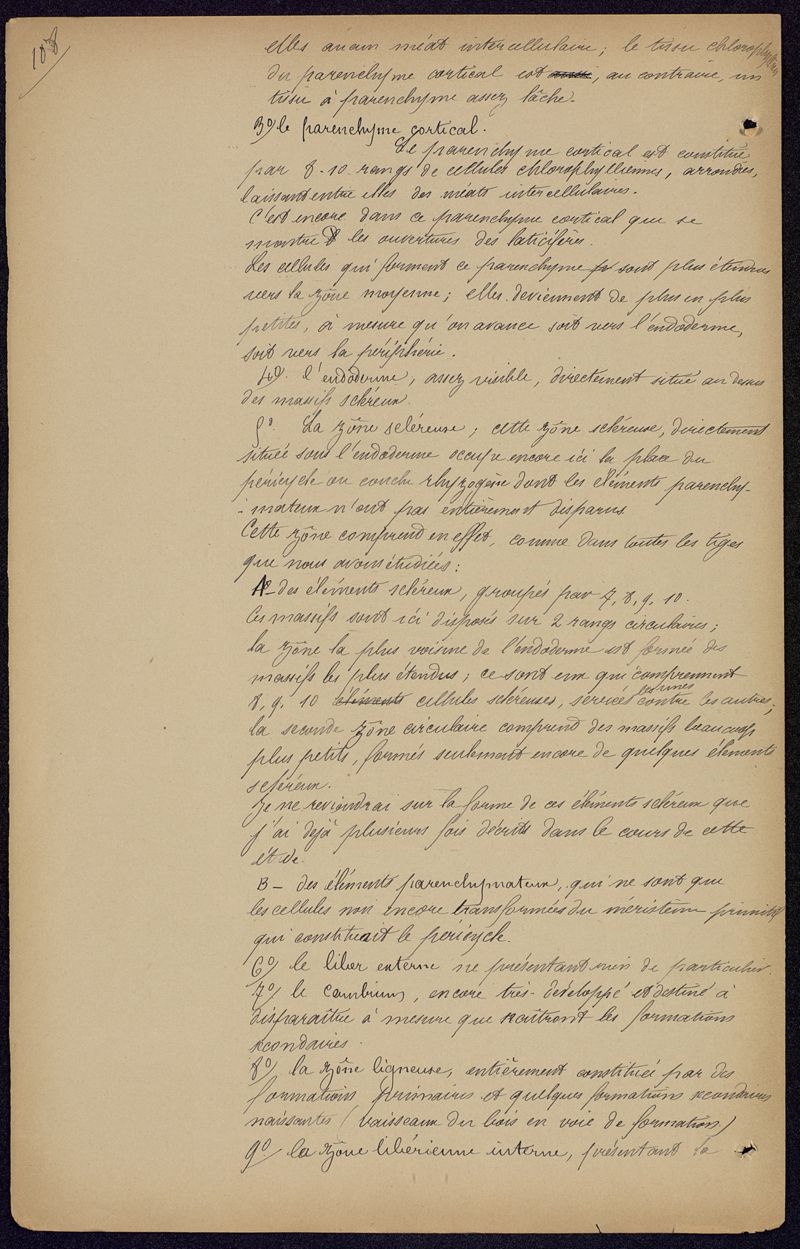 108
elles aucun méat intercellulaire; le tissu chlorophyllien
du parenchyme cortical est aussi, au contraire, un
tissu à parenchyme assez lâche.
3o/ le parenchyme cortical.
Le parenchyme cortical est constitué
par 8-10 rangs de cellules chlorophylliennes, arrondies,
laissant entre elles des méats intercellulaires.
C'est encore dans ce parenchyme cortical que se
montre les ouvertures des laticifères.
Les cellules qui forment ce parenchyme sont plus étendues
vers la zône moyenne; elles deviennent de plus en plus
petites, à mesure qu'on avance soit vers l'endoderme,
soit vers la périphérie.
4o/. l'endoderme, assez visible, directement situé au dessus
des massifs scléreux.
5o. La zône scléreuse; cette zône scléreuse, directement
située sous l'endoderme occupe encore ici la place du
péricycle ou couche rhyzogène dont les éléments parenchy-
-mateux n'ont pas entièrement disparus
Cette zône comprend en effet, comme dans toutes les tiges
que nous avons étudiées:
A- des éléments scléreux, groupés par 7, 8, 9, 10.
Ces massifs sont ici disposés sur 2 rangs circulaires;
la zône la plus voisine de l'endoderme est formée des
massifs les plus étendus; ce sont eux qui comprennent
8, 9, 10 éléments cellules scléreuses, serrées les unes contre les autres;
la seconde zône circulaire comprend des massifs beaucoup
plus petits, formés seulement encore de quelques éléments
scléreux.
Je ne reviendrai sur la forme de ces éléments scléreux que
j'ai déjà plusieurs fois décrits dans le cours de cette
étude.
B - des éléments parenchymateux, qui ne sont que
les cellules non encore transformées du méristème primitif
qui constituait le péricycle.
6o/ le liber externe ne présentant rien de particulier.
7o/ le cambium, encore très-développé et destiné à
disparaître à mesure que naîtront les formations
secondaires.
8o/ la zône ligneuse, entièrement constituée par des
formations primaires et quelques formations secondaires
naissantes (vaisseaux du bois en voie de formation)
9o/ la zône libérienne interne, présentant la